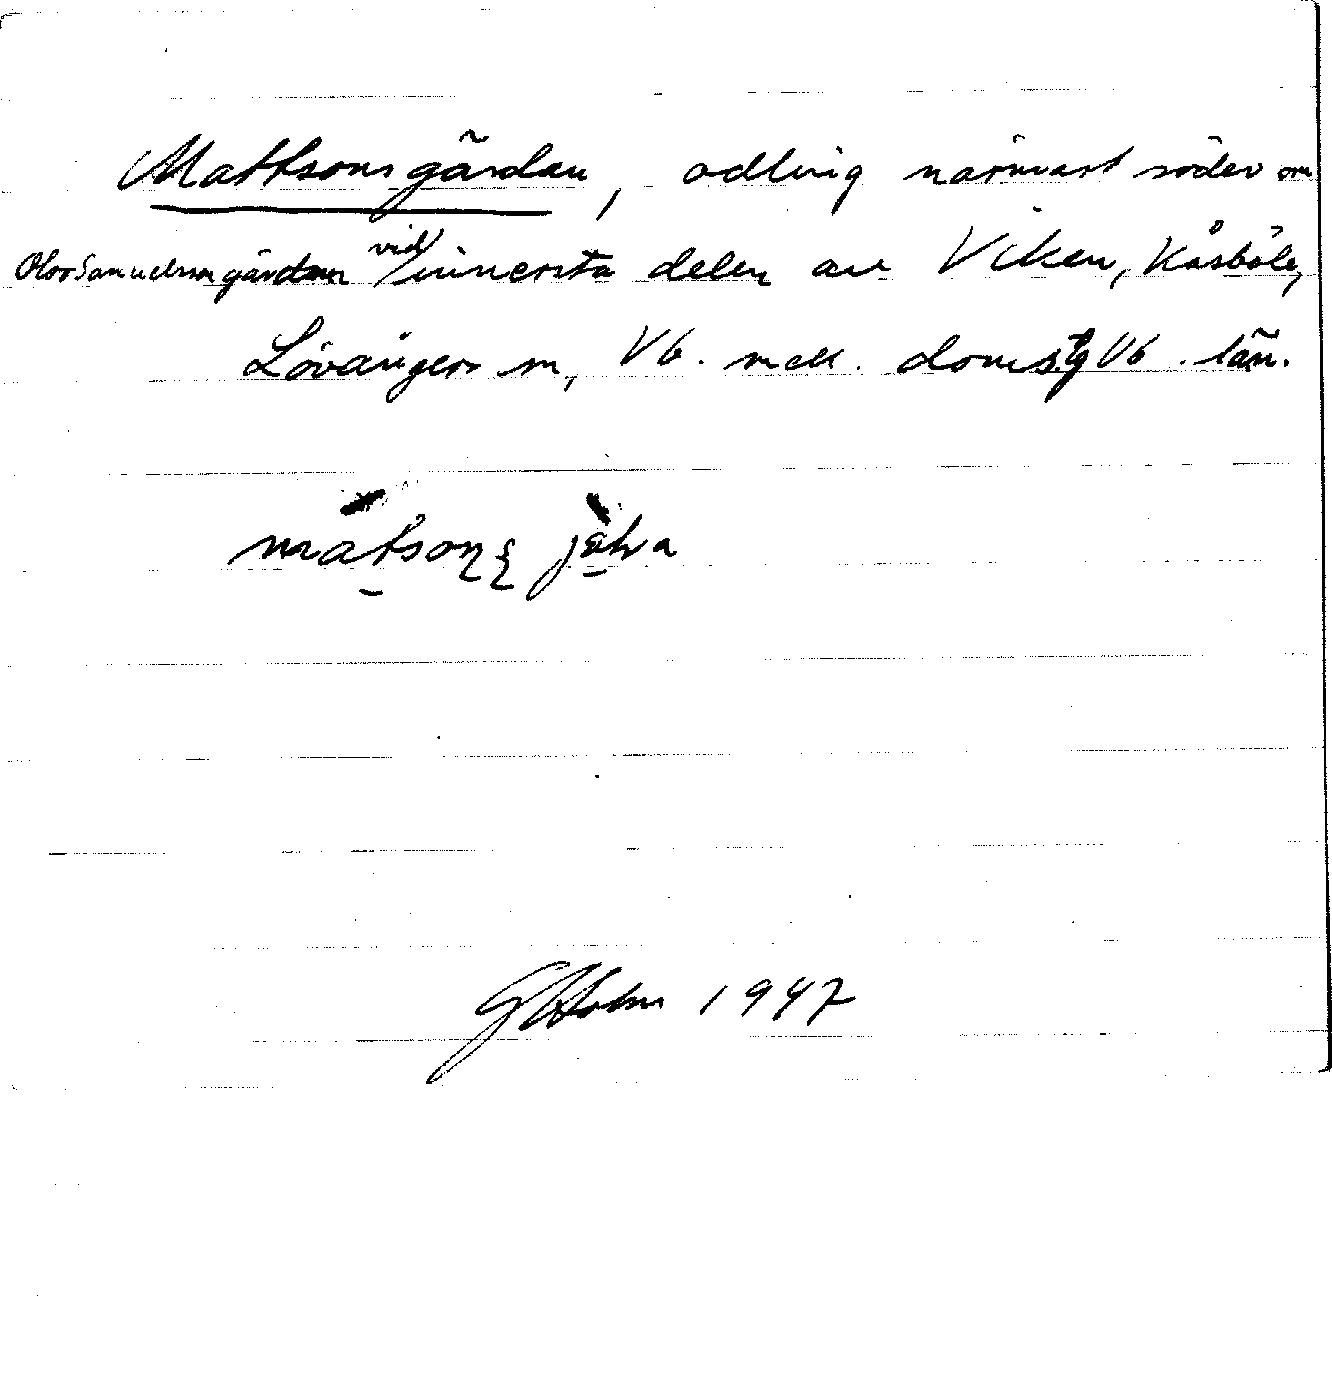 Mattsonsgärdan, odling närmast söder om
OlovSamuelsongärdan vid innersta delen av Viken, Kåsböle,
Lövångers sn, Vb. mell. doms.tg Vb. län.
G Holm 1947